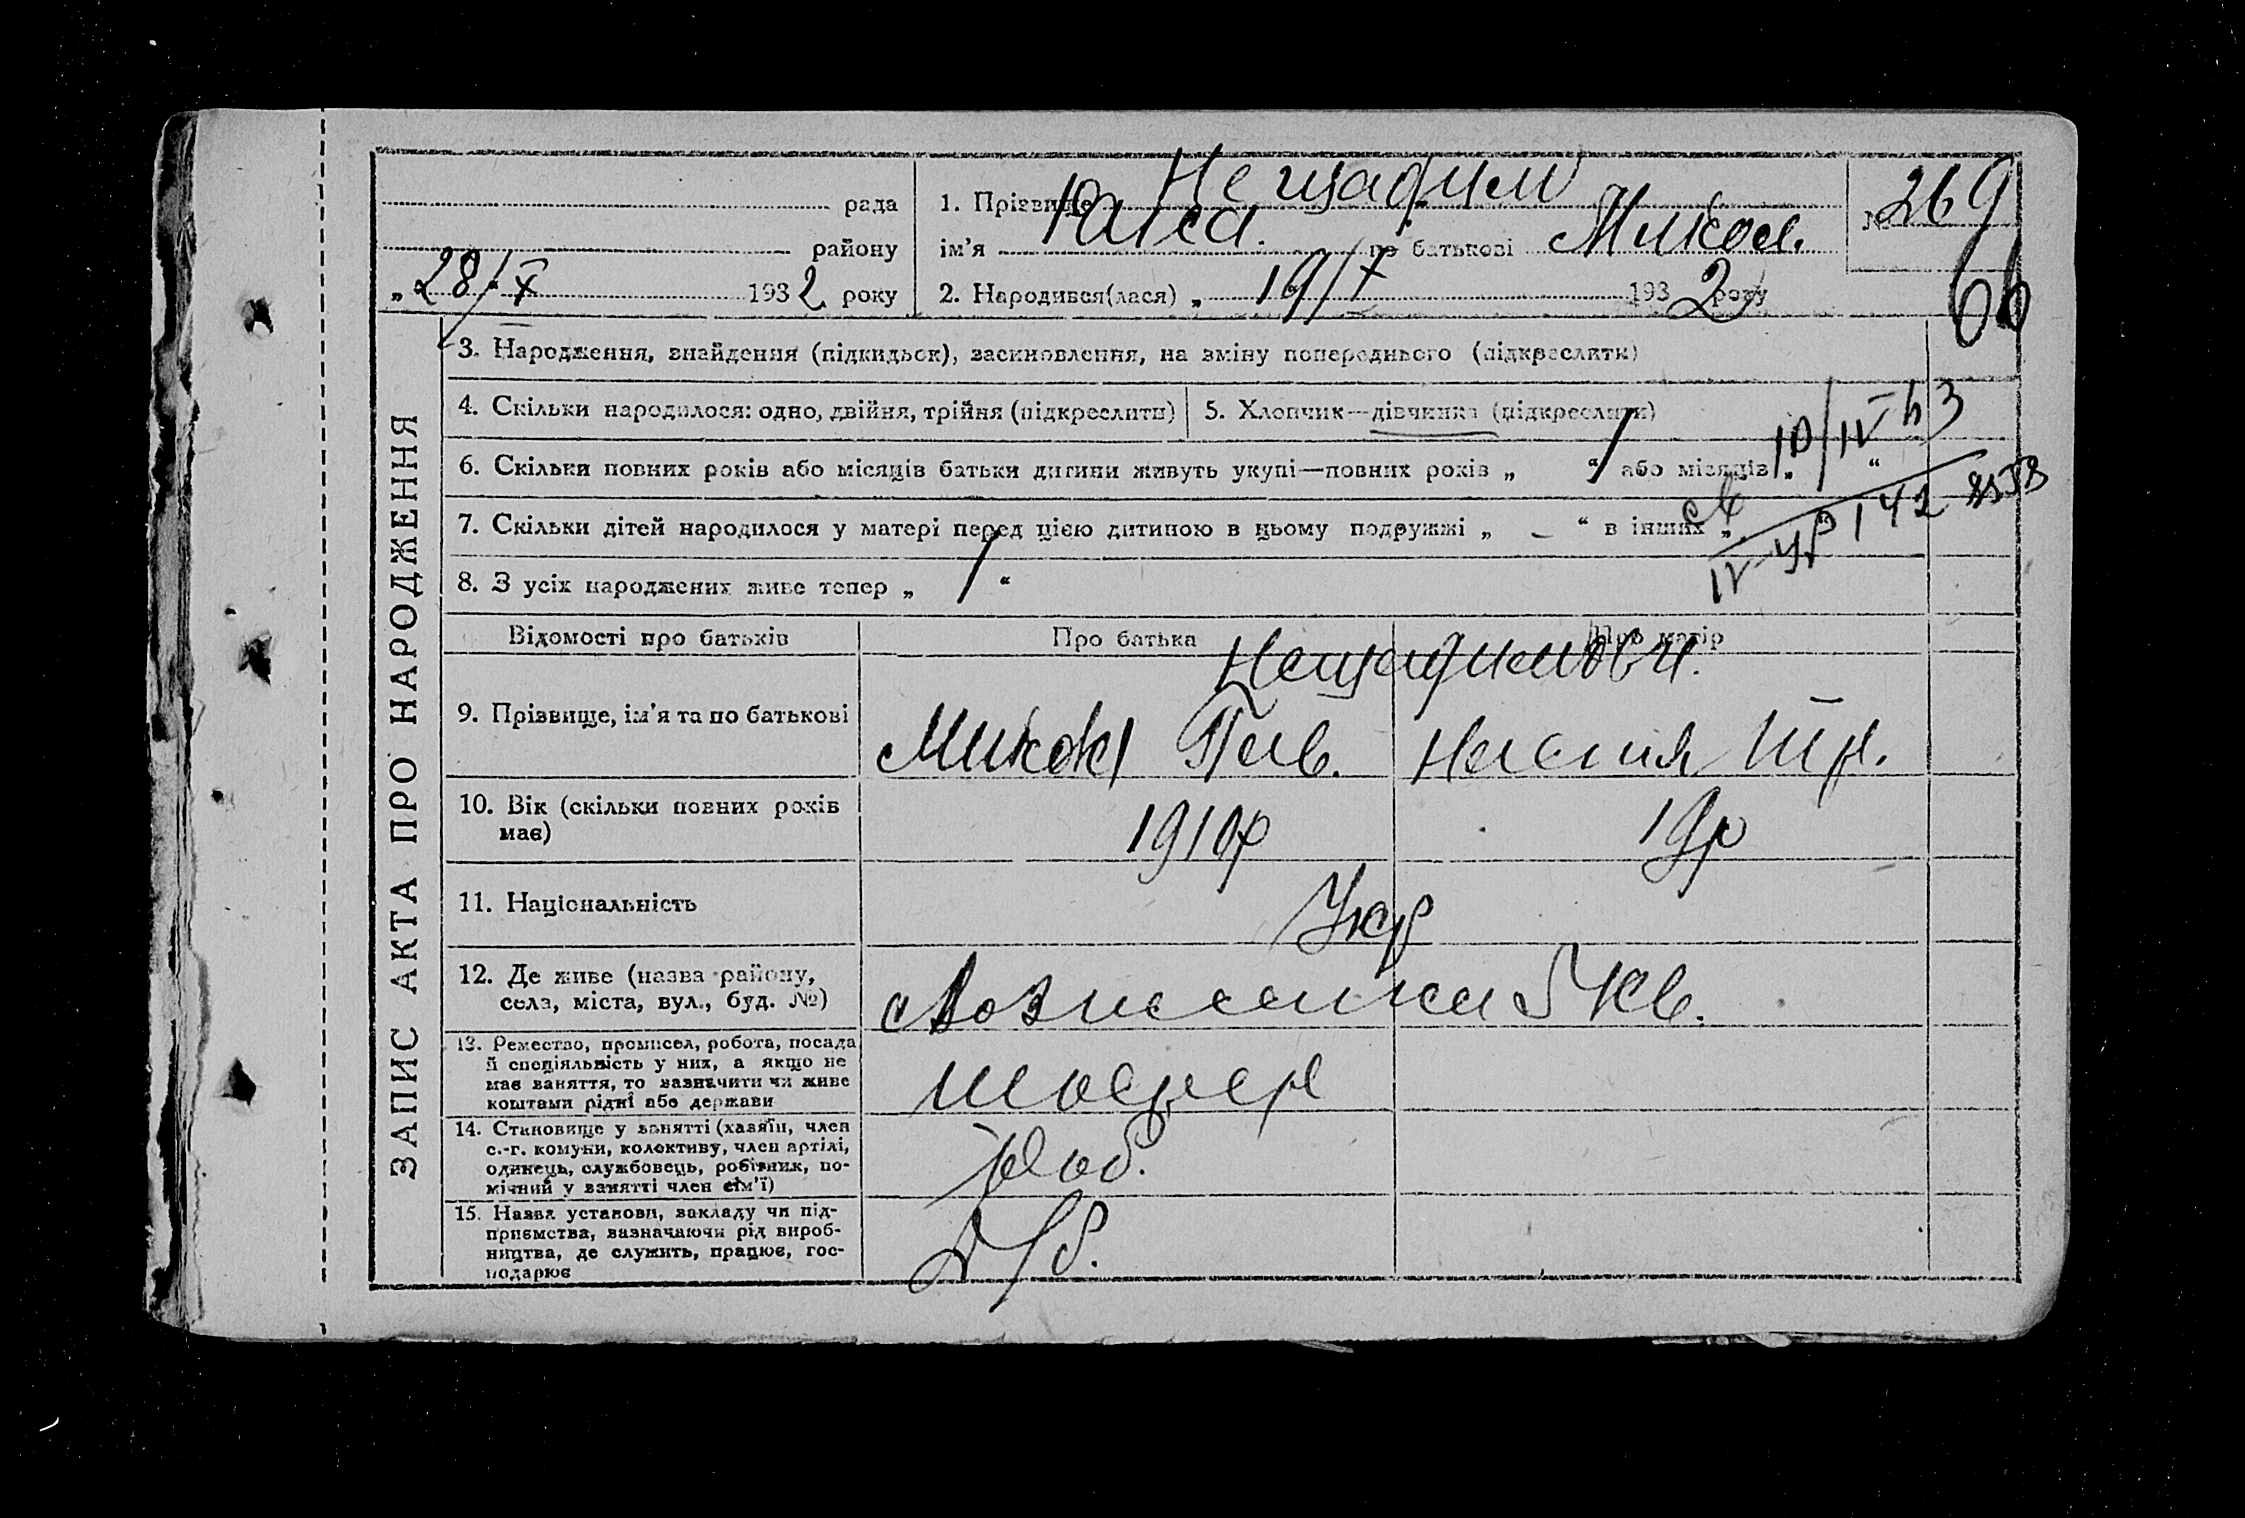 рада
району
„ 28/X 1932 року
1. Прізвище Нещадим
ім’я Раїса. по батькові Микол.
2. Народився(лася) „ 19/X 1932 року
№ 269
66
ЗАПИС АКТА ПРО НАРОДЖЕННЯ
3. Народження, знайдення (підкидьок), засиновлення, на зміну попереднього (підкреслити)
4. Скільки народилося: одно, двійня, трійня (підкреслити)
5. Хлопчик—дівчинка (підкреслити)
6. Скільки повних років або місяців батьки дитини живуть укупі—повних років „ 1 “ або місяців „ “
7. Скільки дітей народилося у матері перед цією дитиною в цьому подружжі „ – “ в інших „
8. З усіх народжених живе тепер „ 1 “
Відомості про батьків
Про батька
Про матір
Нещадимови.
9. Прізвище, ім’я та по батькові
Микол Пав.
10. Вік (скільки повних років має)
1910р
19р
11. Національність
Укр
12. Де живе (назва району, села, міста, вул., буд. №)
Вознесенка 5 кв.
13. Ремество, промисел, робота, посада
й спеціяльність у них, а якщо не
має заняття, то зазначити чи живе
коштами рідні або держави
шофер
14. Становище у занятті (хазяїн, член
с.-г. комуни, колективу, член артілі,
одинець, службовець, робітник, по-
мічний у занятті член сім’ї)
роб.
15. Назва установи, закладу чи під-
приємства, зазначаючи рід вироб-
ництва, де служить, працює, гос-
подарює